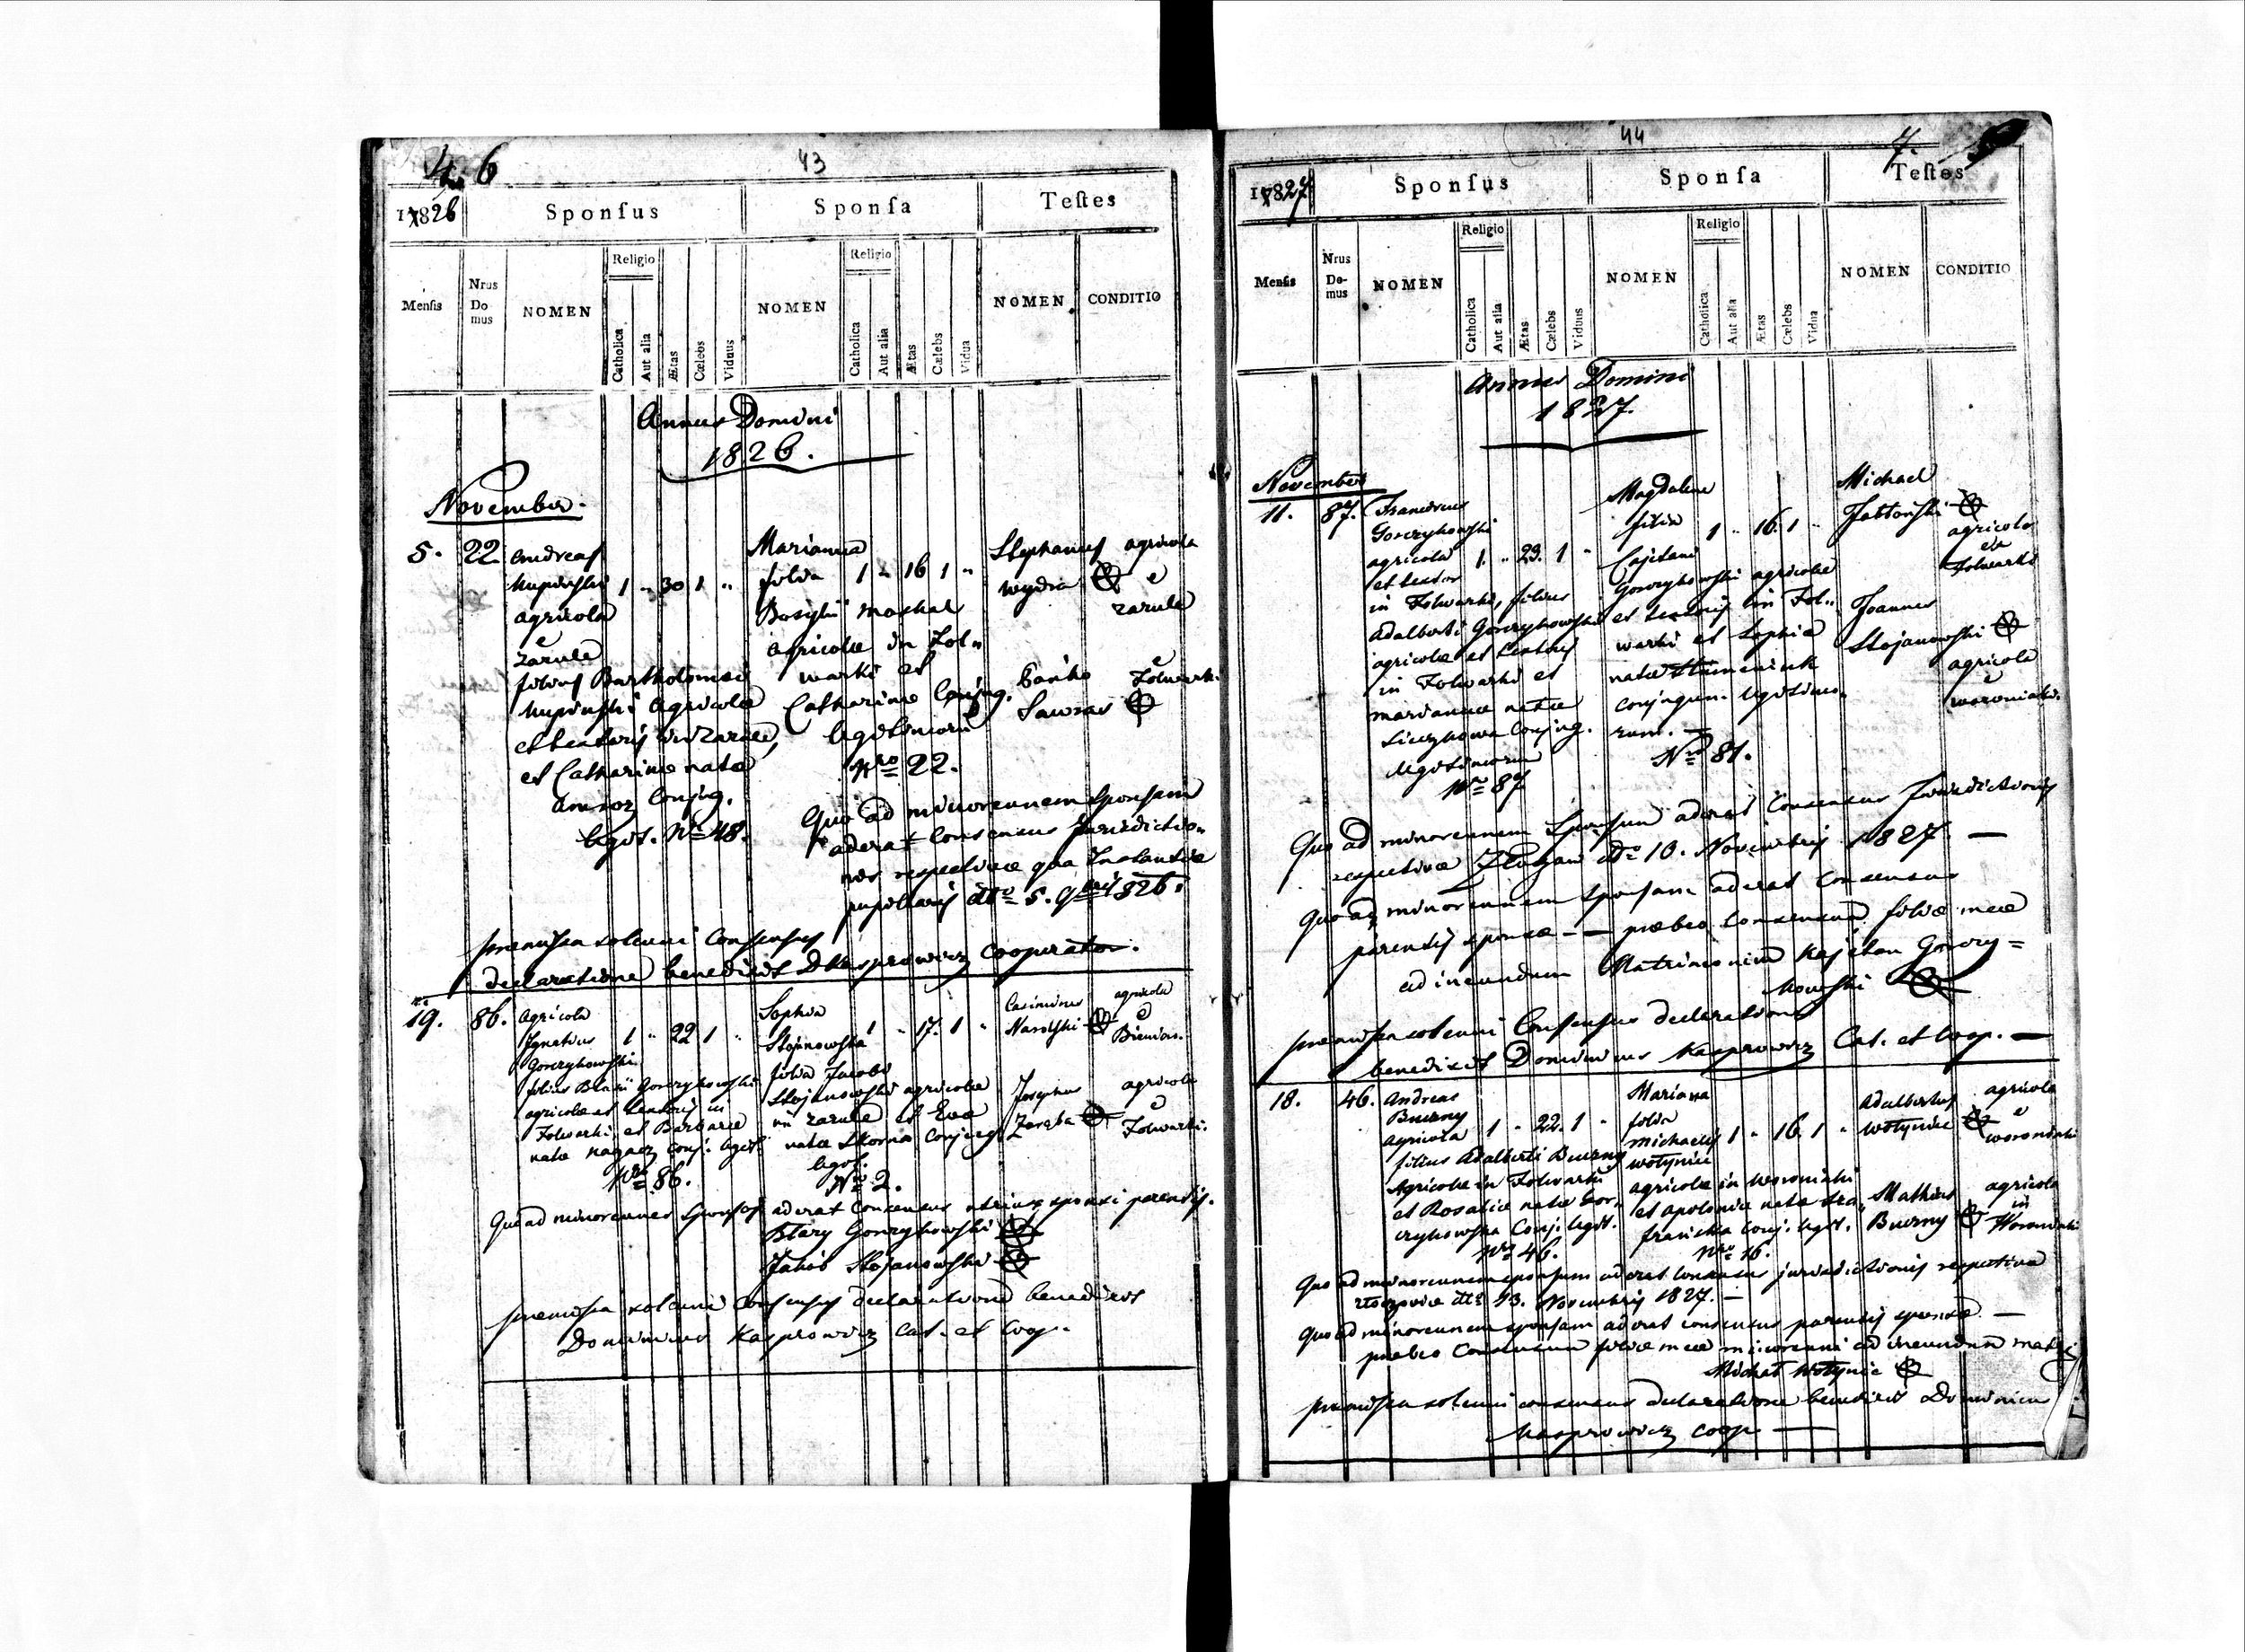 4. 6
43
1826
Sponsus
Sponsa
Testes
Mensis
Nrus Domus
NOMEN
Religio
Catholica
Aut alia
Ætas
Cœlebs
Viduus
NOMEN
Religio
Catholica
Aut alia
Ætas
Cœlebs
Vidua
NOMEN
CONDITIO
Annus Domini
1826.
November.
5. 22 Andreas
Kupinski 1 " 30 1 "
agricola
e
Zarule
filius Bartholomei
Kupinski agricolæ
et textoris in Zarule,
et Catharinæ natæ
conjug.
legit. Nro 48.
Marianna
filia 1 " 16 1 "
Basylii Moskal
agricolæ in Fol=
warki et
Catharinæ Conjug.
legitimorum
Nro 22.
Stephanus agricola
Wydra e
Zarule
e
Folwark.
Quo ad minorennem Sponsam
aderat Consensus Jurisdictio=
nis respectivæ qua Instantiæ
pupillaris dto 5. 9bris 1826.
præmissa solenni Consensus
declaratione benedixit D. Kasprowicz Cooperator.
19. 86. Agricola
Ignatius 1 " 22 1 "
Gorczykowski
filius Blasii Gorczykowski
agricolæ et textoris in
Folwarki et Barbaræ
natæ conj: legit:
Nro 86.
Sophia
Stojanowska 1 " 17. 1 "
filia Jacobi
Stojanowski agricolæ
in Zarule et Evæ
natæ Conjug.
legit.
Nro 2.
Casimirus agricola
e
Josephus agricola
Zaręba e
Folwarki.
Quo ad minorennes Sponsos aderat Consensus utriusq sponsi parentis.
Błazy Gorczykowski
Jakób Stojanowski
præmissa solenni Consensus declaratione benedixit
Dominicus Kasprowicz Cat. et Coop.
44
7.
1827
Sponsus
Sponsa
Testes
Mensis
Nrus Domus
NOMEN
Religio
Catholica
Aut alia
Ætas
Cœlebs
Viduus
NOMEN
Religio
Catholica
Aut alia
Ætas
Cœlebs
Vidua
NOMEN
CONDITIO
Annus Domini
1827.
November
11. 87. Franciscus
Gorczykowski
agricola 1. " 23. 1 "
et textor
in Folwarki, filius
Adalberti Gorczykowski
agricolæ et textoris
in Folwarki et
Mariannæ natæ
Conjug.
legitimorum
Nro 87
Magdalena
filia 1 " 16. 1 "
Cajetani
Gorczykowski agricolæ
et textoris in Fol=
warki et Sophiæ
natæ
conjugum legitimo=
rum.
Nro 81.
Michael
Jabłoński
agricola
ex
Folwarki
Joannes
Stojanowski
agricola
e
Woroniaki.
Quo ad minorennem Sponsum aderat Consensus Jurisdictionis
respectivæ dto 10. Novembris 1827. —
Quo ad minorennem sponsam aderat Consensus
parentis sponsæ — præbeo Consensum filiæ meæ
ad ineundum Matrimonium Kajetan Gorczy=
kowski
præmissa solenni Consensus declaratione
benedixit Dominicus Kasprowicz Cat. et Coop. —
18. 46. Andreas
Burny
agricola 1 " 22. 1 "
filius Adalberti Burny
Agricolæ in Folwarki
et Rosaliæ natæ Gor=
czykowska Conj. legit.
Nro 46.
Mariana
filia
Michaelis 1 " 16. 1 "
Wołyniec
agricolæ in Woroniaki
et Apoloniæ natæ
conj. legit.
Nro 16.
Adalbertus agricola
Wołyniec e
Woroniaki
Mathias agricola
Burny in
Woroniaki
Quo ad minorennem sponsum aderat Consensus jurisdictionis respectivæ
dto 13. Novembris 1827. —
Quo ad minorennem sponsam aderat consensus parentis sponsæ —
præbeo Consensum filiæ meæ minorenni ad ineundum
Michał Wołyniec
præmissa solenni consensus declaratione benedixit Dominicus
Kasprowicz coop. —